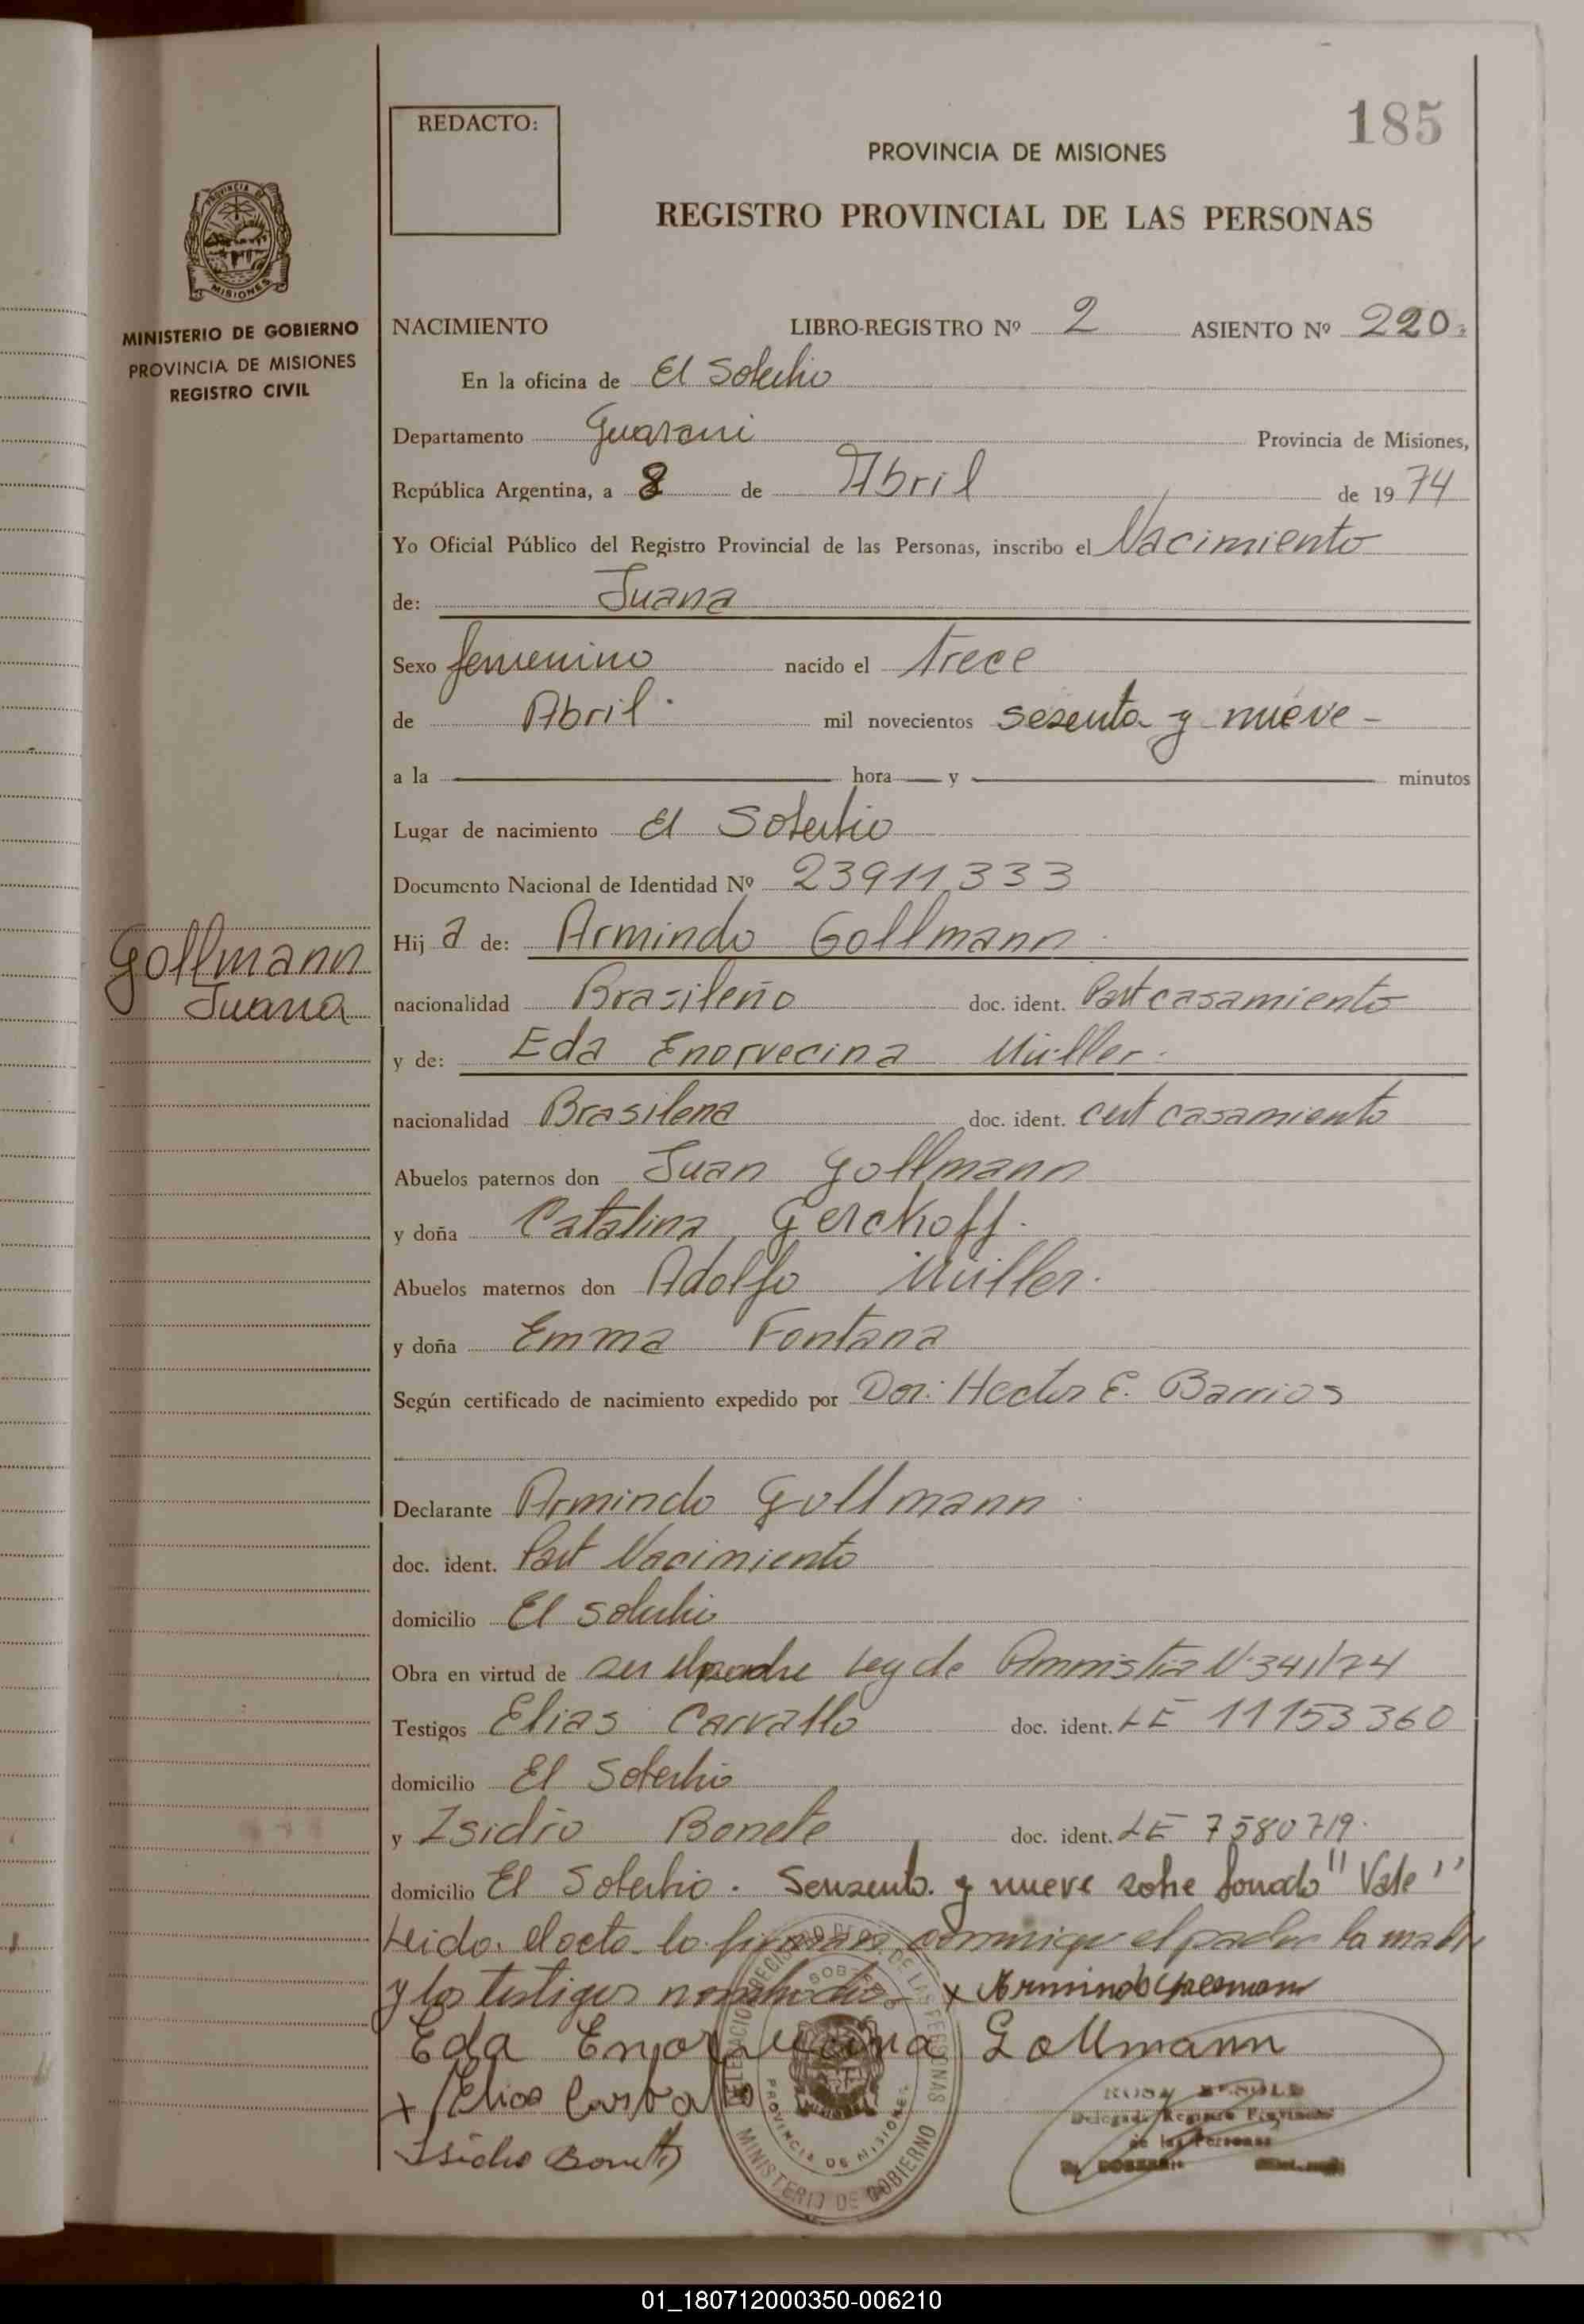 185
REDACTO:
PROVINCIA DE MISIONES
REGISTRO PROVINCIAL DE LAS PERSONAS
MISIONES
MINISTERIO DE GOBIERNO
PROVINCIA DE MISIONES
REGISTRO CIVIL
NACIMIENTO LIBRO-REGISTRO Nº 2 ASIENTO Nº 220
En la oficina de El Soberbio
Departamento Guarani Provincia de Misiones,
República Argentina, a 8 de Abril de 1974
Yo Oficial Público del Registro Provincial de las Personas, inscribo el Nacimiento
de: Juana
Sexo femenino nacido el trece
de Abril. mil novecientos sesenta y nueve -
a la hora y minutos
Lugar de nacimiento El Soberbio
Documento Nacional de Identidad Nº 23911,333
Gollmann
Juana
Hija de: Armindo Gollmann
nacionalidad Brasileño doc. ident. Part casamiento
y de: Eda Enorvecina Müller.
nacionalidad Brasilena doc. ident. cert casamiento
Abuelos paternos don Juan Gollmann
y doña Catalina Gerckoff.
Abuelos maternos don Adolfo Müller.
y doña Emma Fontana
Según certificado de nacimiento expedido por Hector E. Barrios
Declarante Armindo Gollmann
doc. ident. Part Nacimiento
domicilio El Soberbio
Obra en virtud de ser el padre Ley de Amnistia N. 341/74
Testigos Elias Carvallo doc. ident. LE 11153360
domicilio El Soberbio
y Isidro Bonete doc. ident. LE 7580719.
domicilio El Soberbio. y nueve sobre "Vale"
Leido el acta lo firman conmigo el padre la madre
y los testigos x Armindo
Eda Gollmann
x Elias Carvalo
Isidro
MINISTERIO DE GOBIERNO
PROVINCIA DE MISIONES
de las Personas
01_180712000350-006210